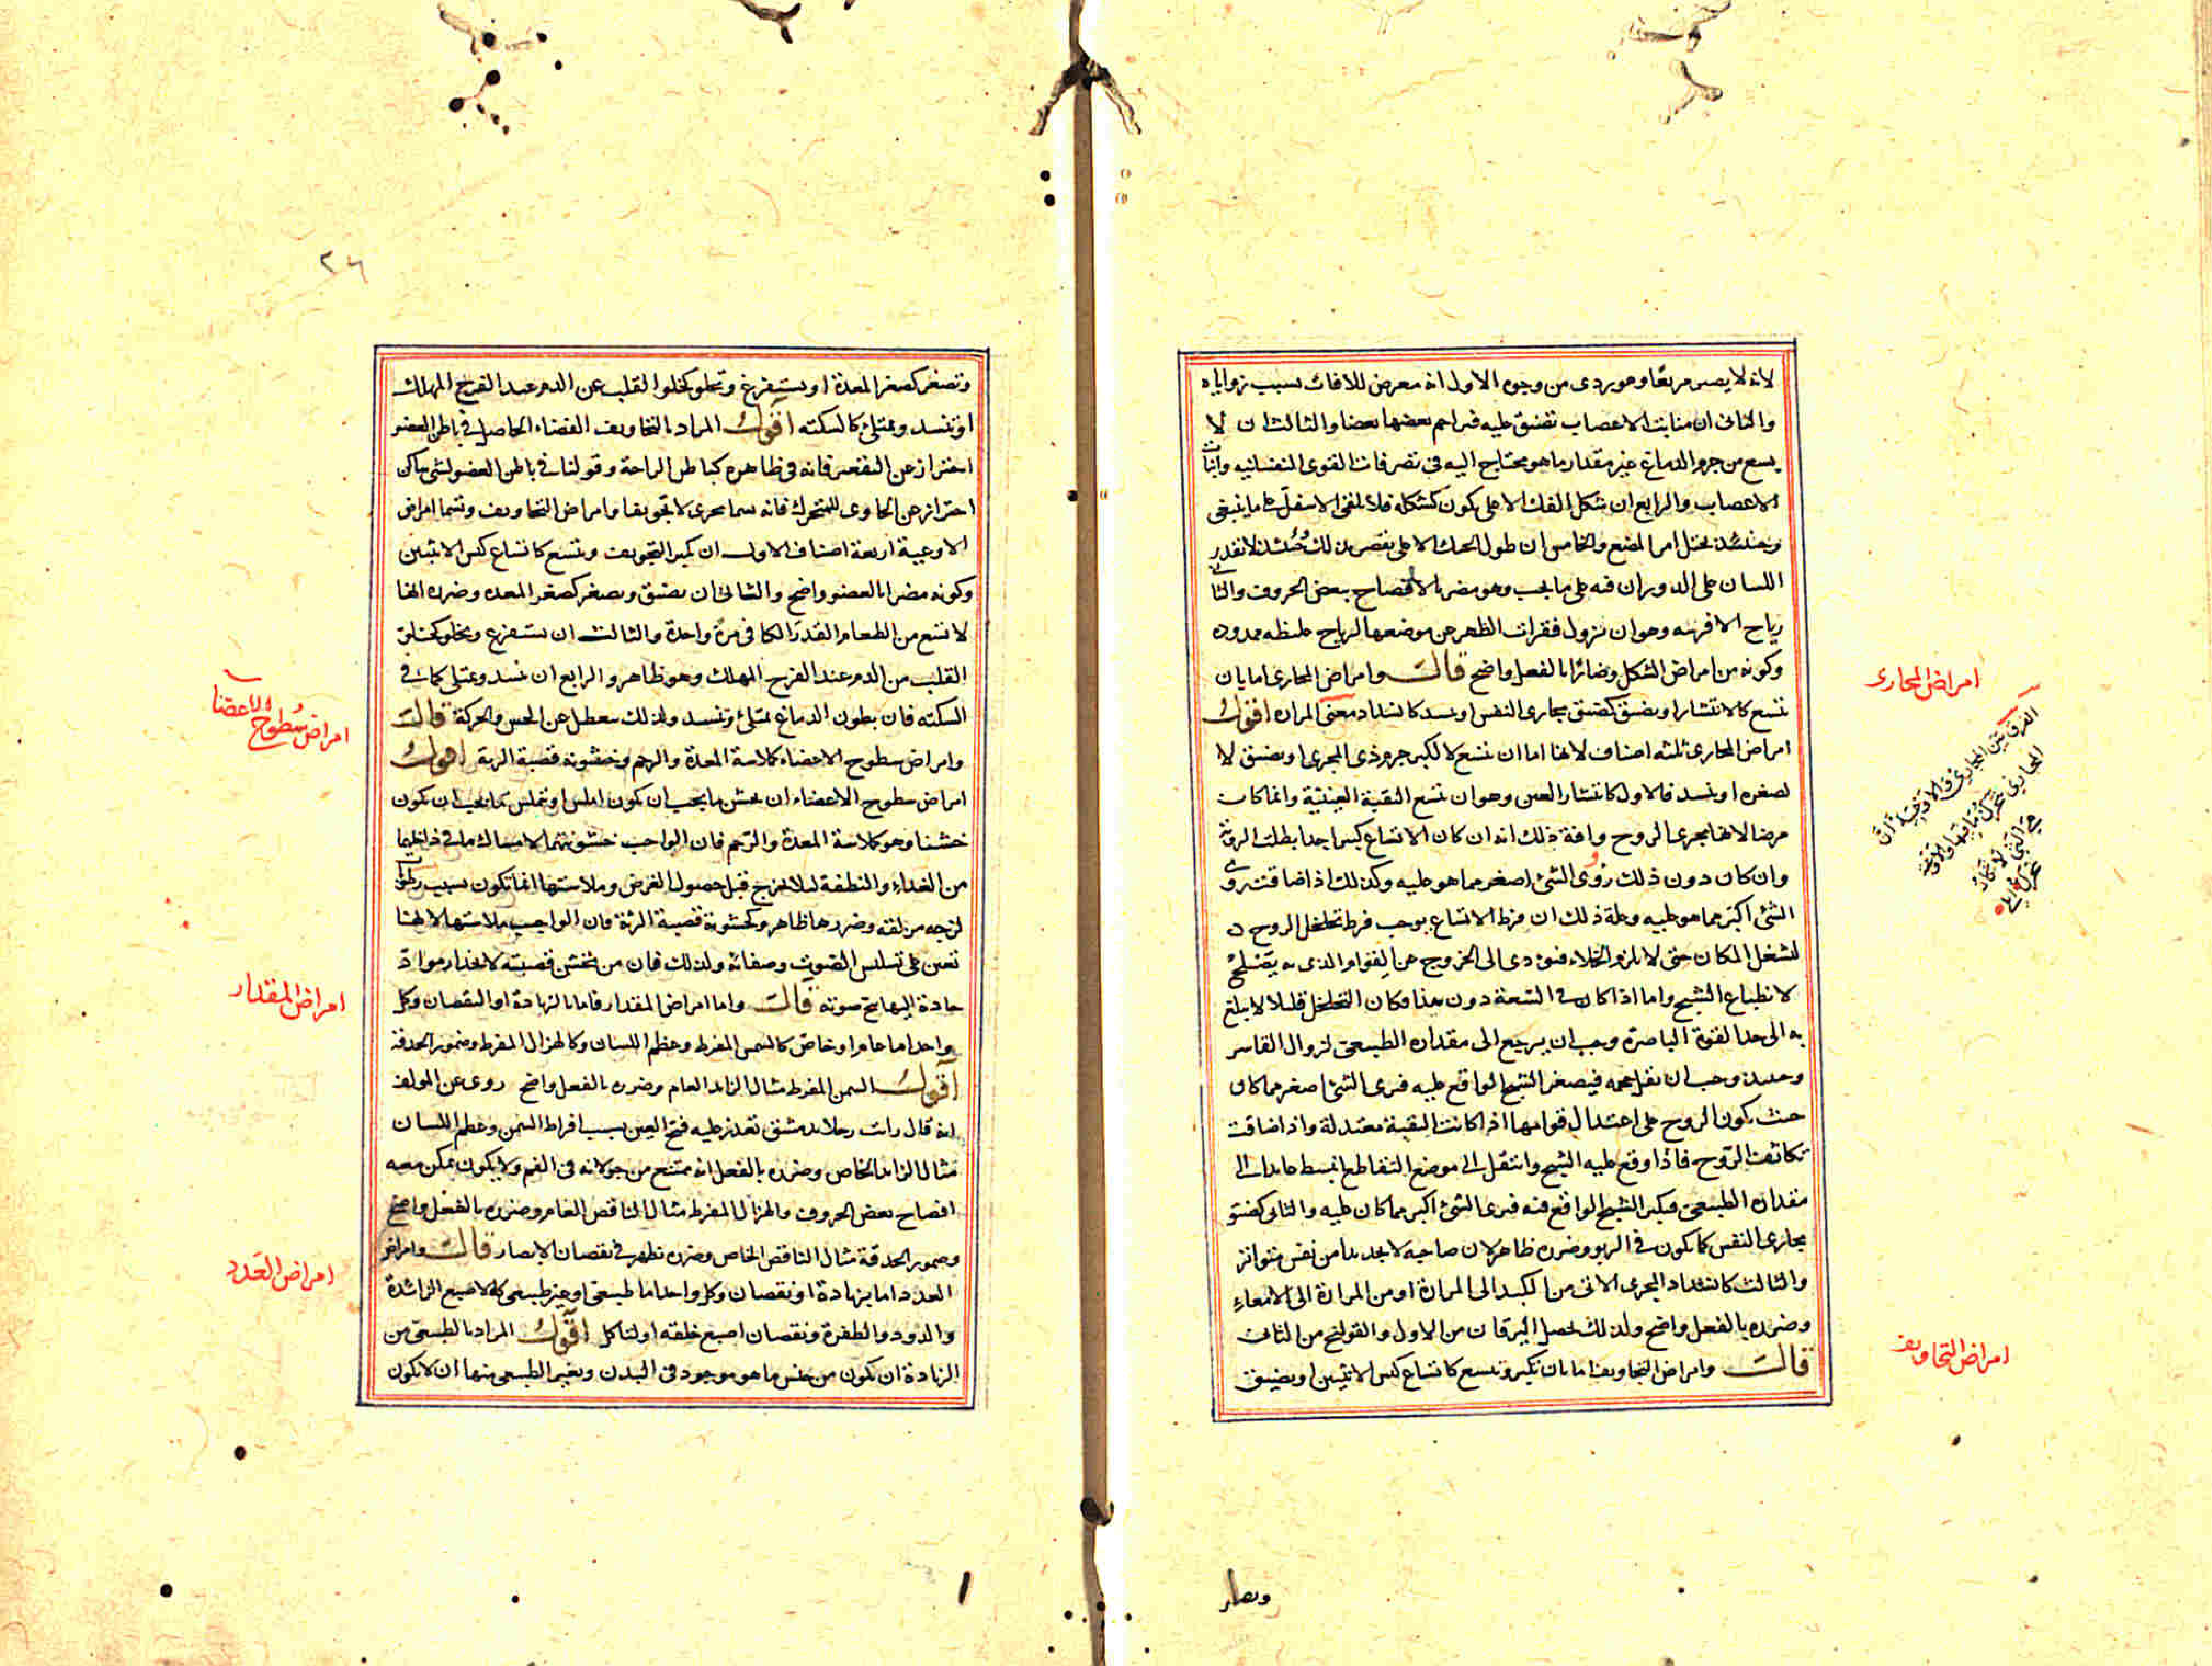 لانه لا يصير مربعا وهو ردى من وجوه الاول انه معرض للافات بسبب زواياه
والثانى ان منابت الاعصاب تضيق عليه فيزاحم بعضها بعضا والثالث ان لا
يسع من جرم الدماغ غير مقدار ما هو محتاج اليه فى تصرفات القوى النفسانيه وانبات
الاعصاب والرابع ان شكل الفك الاعلى يكون كشكله فلا يلقى الاسفل على ما ينبغى
وعند ذلك يختل امر المضغ والخامس ان طول الحنك الاعلى يقصر بذلك فحينئذ لا تقدر
اللسان على الدوران فيه على ما يجب وهو مضر بالافصاح ببعض الحروف والثانى
رياح الافرسه وهو ان تزول فقرات الظهر عن موضعها لرياح غليظه ممدده
وكونه من امراض الشكل وضائرا بالفعل واضح قالـــ وامراض المجارى اما بان
تتسع كالانتشار او يضيق كضيق مجارى النفس او تنسد كانسداد مجرى المراره اقول
امراض المجارى ثلثه اصناف لانها اما ان تتسع لا لكبر جرم ذى المجرى او يضيق لا
لصغره او تنسد فالاول كانتشار العين وهو ان تتسع الثقبة العينية وانما كان
مرضا لانها مجرى الروح وافة ذلك انه ان كان الاتساع كبيرا جدا بطلت الرؤية
وان كان دون ذلك رؤى الشئ اصغر مما هو عليه وكذلك اذا ضاقت روى
الشئ اكبر مما هو عليه وعلة ذلك ان فرط الاتساع يوجب فرط تخلخل الروح
لتشغل المكان حتى لا يلزم الخلاء فيؤدى الى الخروج عن القوام الذى به يصلح
لانطباع الشبح واما اذا كان فى السعة دون هذا وكان التخلخل قليلا لا يبلغ
به الى حد القوة الباصرة وجب ان يرجع الى مقداره الطبيعى لزوال القاسر
وحينئذ وجب ان يقل حجمه فيصغر الشبح الواقع عليه فيرى الشئ اصغر مما كان
حيث يكون الروح على اعتدال قوامها اذا كانت الثقبة معتدلة واذا ضاقت
تكاثفت الروح فاذا وقع عليه الشبح وانتقل الى موضع التقاطع انبسط عائدا الى
مقداره الطبيعى فيكبر الشبح الواقع فيه فيرى الشئ اكبر مما كان عليه والثانى كضيق
مجارى النفس كما يكون فى الربو وضرره ظاهر لان صاحبه لا يجد بدا من نفس متواتر
والثالث كانسداد المجرى الاتى من الكبد الى المرارة او من المرارة الى الامعاء
وضرره بالفعل واضح ولذلك يحصل اليرقان من الاول والقولنج من الثانى
قالـــ وامراض التجاويف اما بان تكبر وتتسع كاتساع كيس الانثيين او يضيق
امراض المجارى
الفرق بين المجارى والاوعية ان
المجارى تتحرك
امراض التجاويف
وتصغر
٢٦
وتصغر كصغر المعدة او يستفرغ وتخلو كخلو القلب عن الدم عند الفرح المهلك
او تنسد وتمتلئ كالسكته اقول المراد بالتجاويف الفضاء الحاصل فى باطن العضو
احتراز عن التقعير فانه فى ظاهره كباطن الراحة وقولنا فى باطن العضو لشئ ساكن
احتراز عن الحاوى للمتحرك فانه يسما مجرى لا تجويفا وامراض التجاويف وتسما امراض
الاوعيية اربعة اصناف الاول ان تكبر التجويف وتتسع كاتساع كيس الانثيين
وكونه مضرا بالعضو واضح والثانى ان يضيق ويصغر كصغر المعده وضرره انها
لا تسع من الطعام القدر الكافى مرة واحدة والثالث ان يستفرغ ويخلو كتخلى
القلب من الدم عند الفرح المهلك وهو ظاهر والرابع ان تنسد وتمتلى كما فى
السكته فان بطون الدماغ تمتلئ وتنسد ولذلك يتعطل عن الحس والحركة قالـــ
وامراض سطوح الاعضاء كملاسة المعدة والرحم وخشونة قصبة الرية اقول
امراض سطوح الاعضاء ان يخشن ما يجب ان يكون املس او يتملس ما يجب ان يكون
خشنا وهو كملاسة المعدة والرحم فان الواجب خشونتهما لامساك ما فى داخلهما
من الغذاء والنطفة لئلا يخرج قبل حصول الغرض وملاستها انما تكون بسبب رطوبة
لزجه مزلقه وضررها ظاهر وكخشونة قصبة الرئة فان الواجب ملاستها لانها
تعين على تسلس الصوت وصفائه ولذلك فان من تخشن قصبته لانحدار مواد
حادة اليها يبح صوته قالـــ واما امراض المقدار فاما بالزيادة او النقصان وكل
واحد اما عام او خاص كالسمن المفرط وعظم اللسان وكالهزال المفرط وضمور الحدقة
اقول السمن المفرط مثال الزائد العام وضرره بالفعل واضح روى عن المولف
انه قال رايت رجلا بدمشق تعذر عليه فتح العين بسبب افراط السمن وعظم اللسان
مثال الزائد الخاص وضرره بالفعل انه يمتنع من جولانه فى الفم ولا يكون يمكن معه
افصاح بعض الحروف والهزال المفرط مثال الناقص العام وضرره بالفعل واضح
وضمور الحدقة مثال الناقص الخاص وضرره تظهر فى نقصان الابصار قالـــ وامراض
العدد اما بزيادة او نقصان وكل واحد اما طبيعى او غير طبيعى كالاصبع الزائدة
والدود والظفرة ونقصان اصبع خلقه او لتاكل اقول المراد بالطبيعى من
الزيادة ان تكون من جنس ما هو موجود فى البدن وبغير الطبيعى منها ان لا تكون
امراض سطوح الاعضا
امراض المقدار
امراض العدد